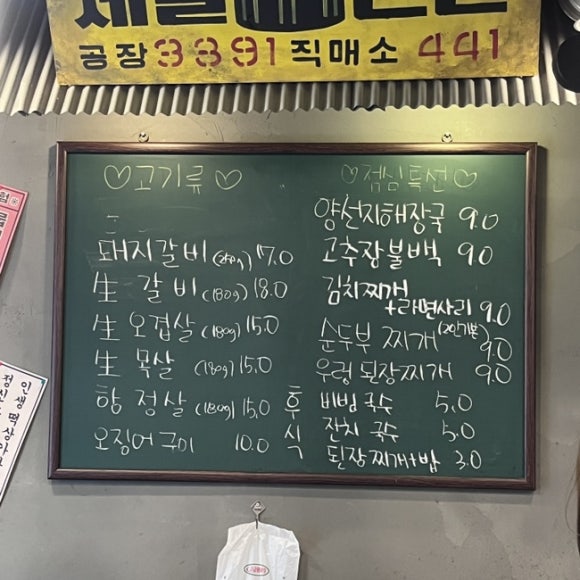 공장 3391 직매소 441
♡고기류♡
돼지갈비 (250g) 17.0
生 갈비 (180g) 18.0
生 오겹살 (180g) 15.0
生 목살 (180g) 15.0
항정살 (180g) 15.0
오징어 구이 10.0
♡점심특선♡
양선지해장국 9.0
고추장불백 9.0
김치찌개
+라면사리 9.0
순두부 찌개 (2인기본) 9.0
우렁 된장찌개 9.0
후식
비빔국수 5.0
잔치 국수 5.0
된장찌개+밥 3.0
인생떡상